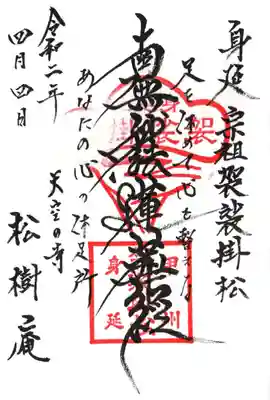 身延 宗祖袈裟掛松
足を休めて心も整えませ
南無妙法蓮華経
あなたの心の休足所
令和二年
四月四日
天空の寺
松樹庵
身延